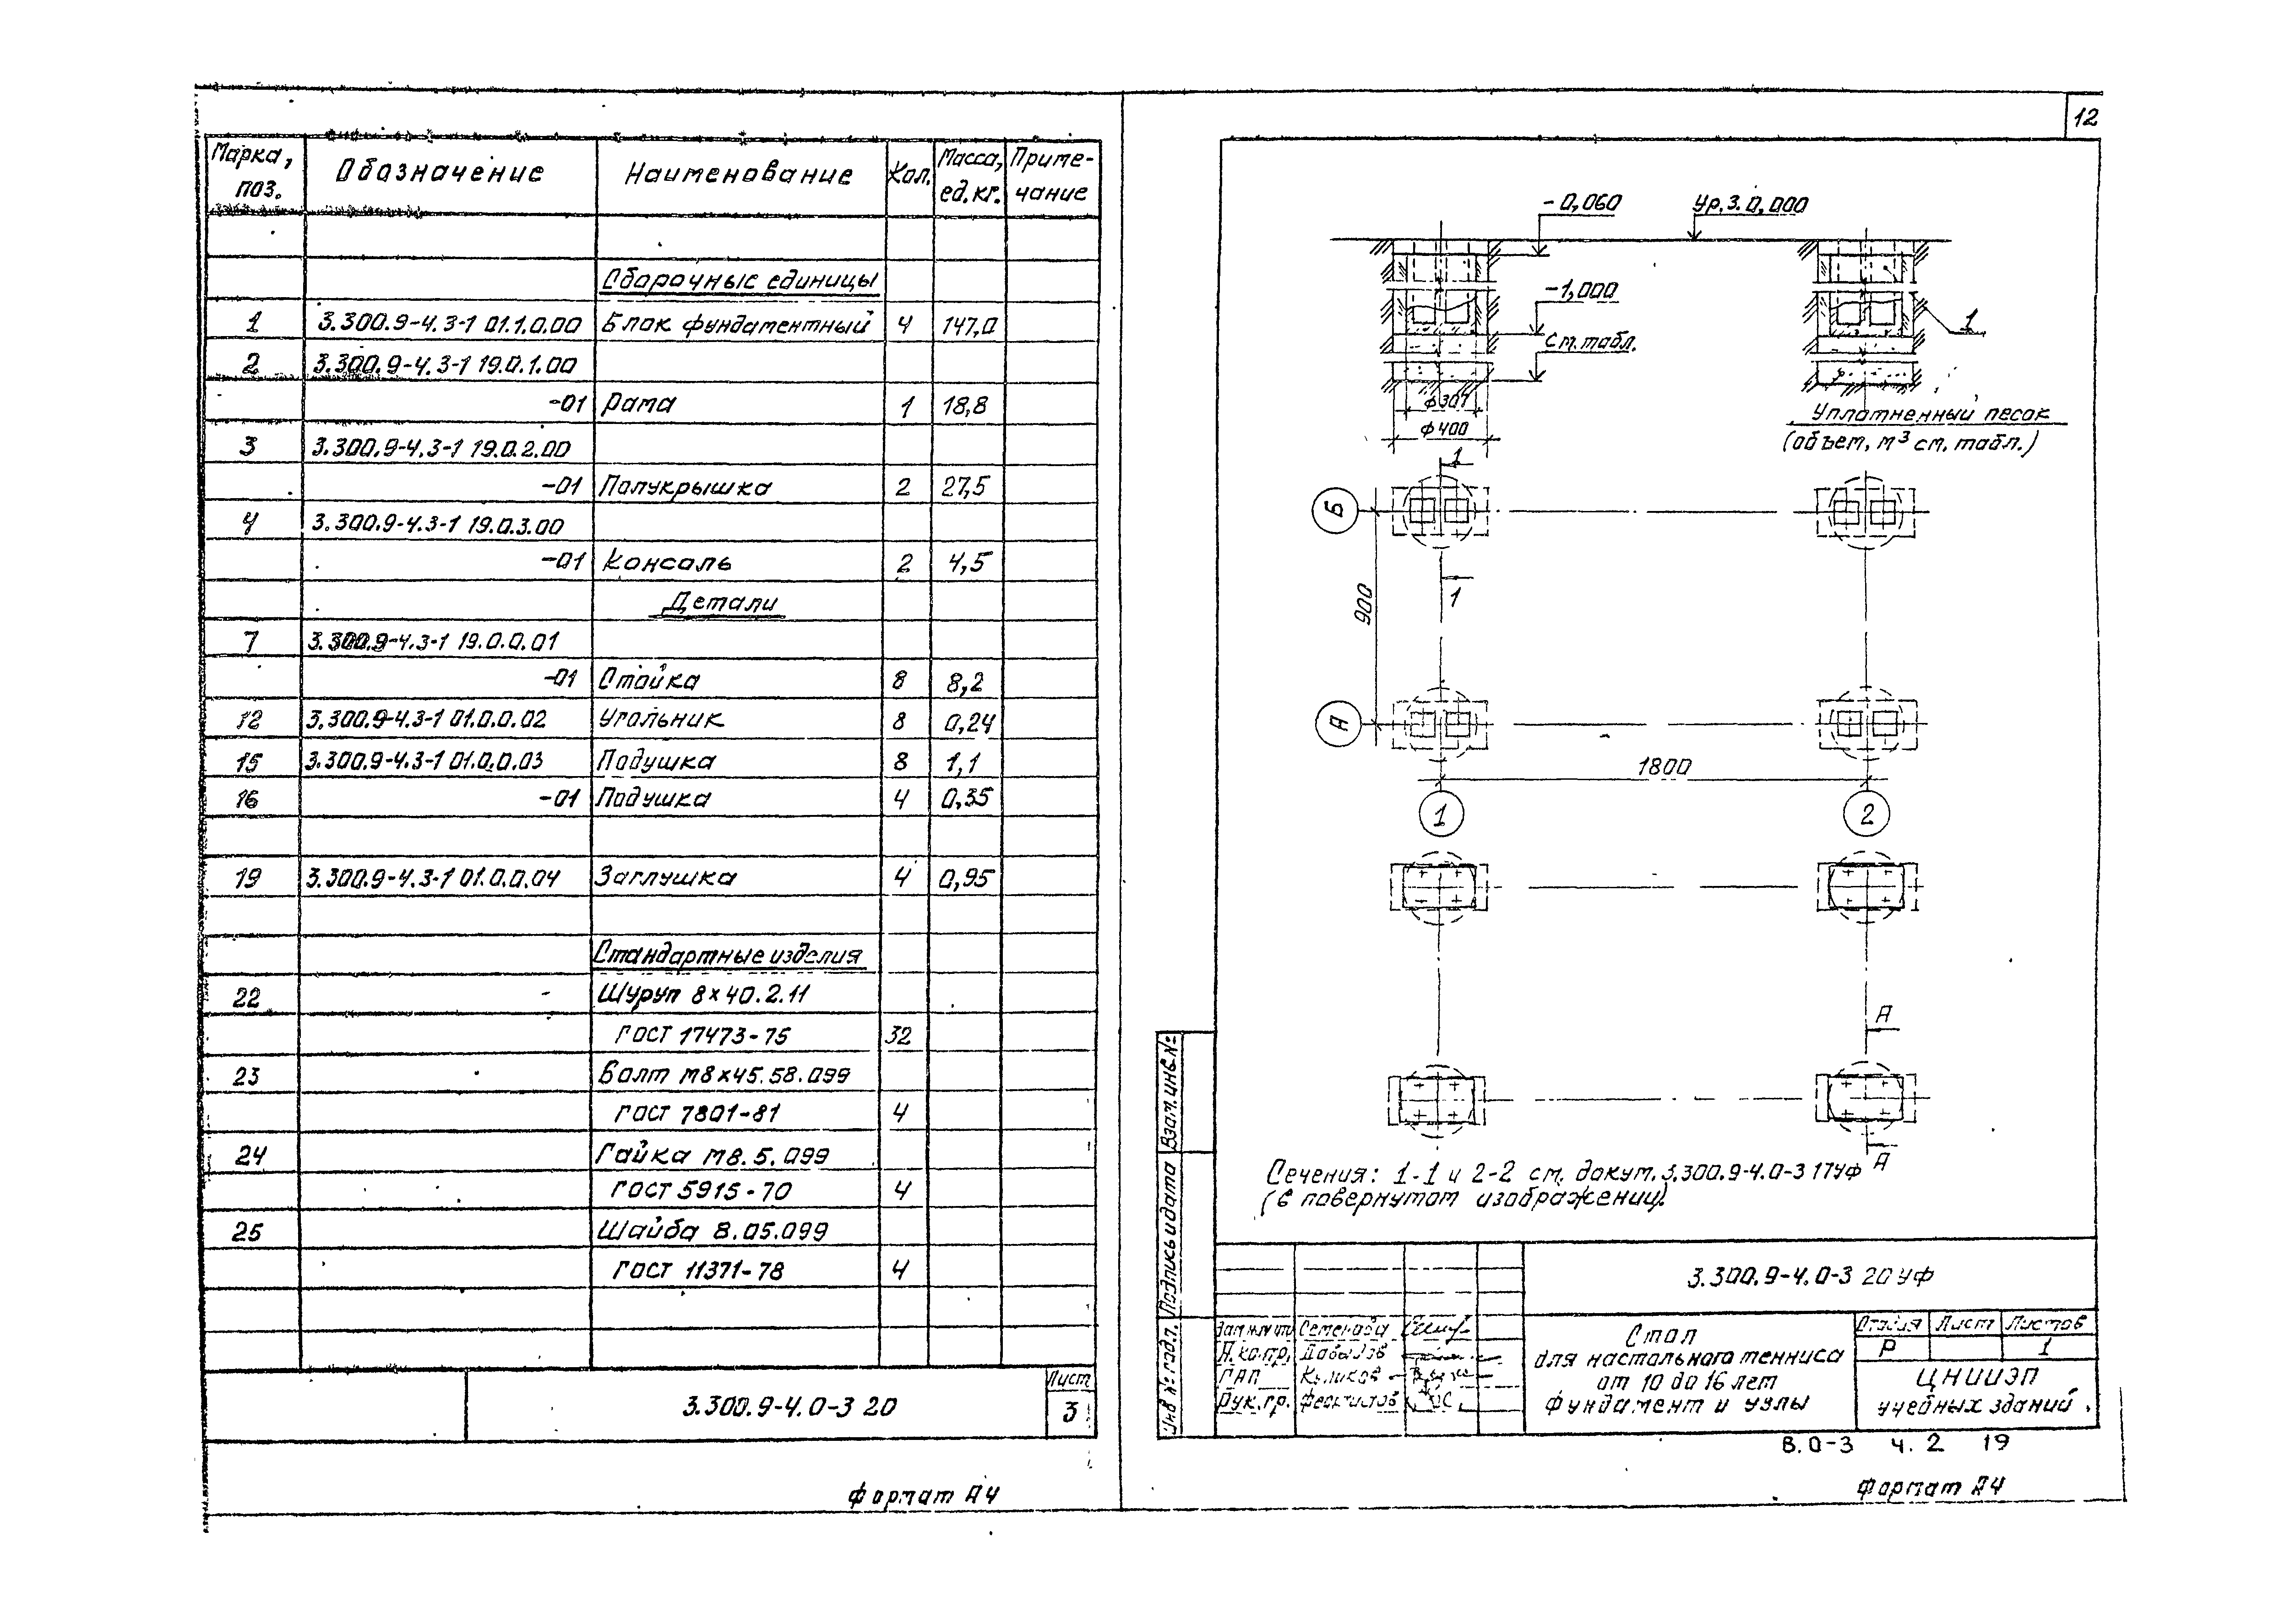 Марка, поз. Обозначение Наименование Кол. Масса, ед. кг. Приме-чание
Сборочные единицы
1 3.300.9-4.3-1 01.1.0.00 Блок фундаментный 4 147,0
2 3.300.9-4.3-1 19.0.1.00
-01 Рама 1 18,8
3 3.300.9-4.3-1 19.0.2.00
-01 Полукрышка 2 27,5
4 3.300.9-4.3-1 19.0.3.00
-01 Консоль 2 4,5
Детали
7 3.300.9-4.3-1 19.0.0.01
-01 Стойка 8 8,2
12 3.300.9-4.3-1 01.0.0.02 Угольник 8 0,24
15 3.300.9-4.3-1 01.0.0.03 Подушка 8 1,1
16 -01 Подушка 4 0,35
19 3.300.9-4.3-1 01.0.0.04 Заглушка 4 0,95
Стандартные изделия
22 Шуруп 8×40.2.11
ГОСТ 17473-75 32
23 Болт М8×45.58.099
ГОСТ 7801-81 4
24 Гайка М8.5.099
ГОСТ 5915-70 4
25 Шайба 8.05.099
ГОСТ 11371-78 4
3.300.9-4.0-3 20
Лист
3
Формат А4
12
-0,060
Ур.з. 0,000
-1,000
См. табл.
1
ф301
ф400
Уплотненный песок
(объем, м³ см. табл.)
1
Б
900
1
А
1800
1
2
А
А
Сечения: 1-1 и 2-2 см. докум. 3.300.9-4.0-3 17УФ
(в повернутом изображении).
Взам. инв. №
Подпись и дата
Инв № подл.
3.300.9-4.0-3 20УФ
Семенова
Н.контр. Давыдов
ГАП Куликов
Рук.гр. Феоктистов
Стол
для настольного тенниса
от 10 до 16 лет
фундамент и узлы
Стадия Лист Листов
Р 1
ЦНИИЭП
учебных зданий
В.0-3 ч.2 19
Формат А4